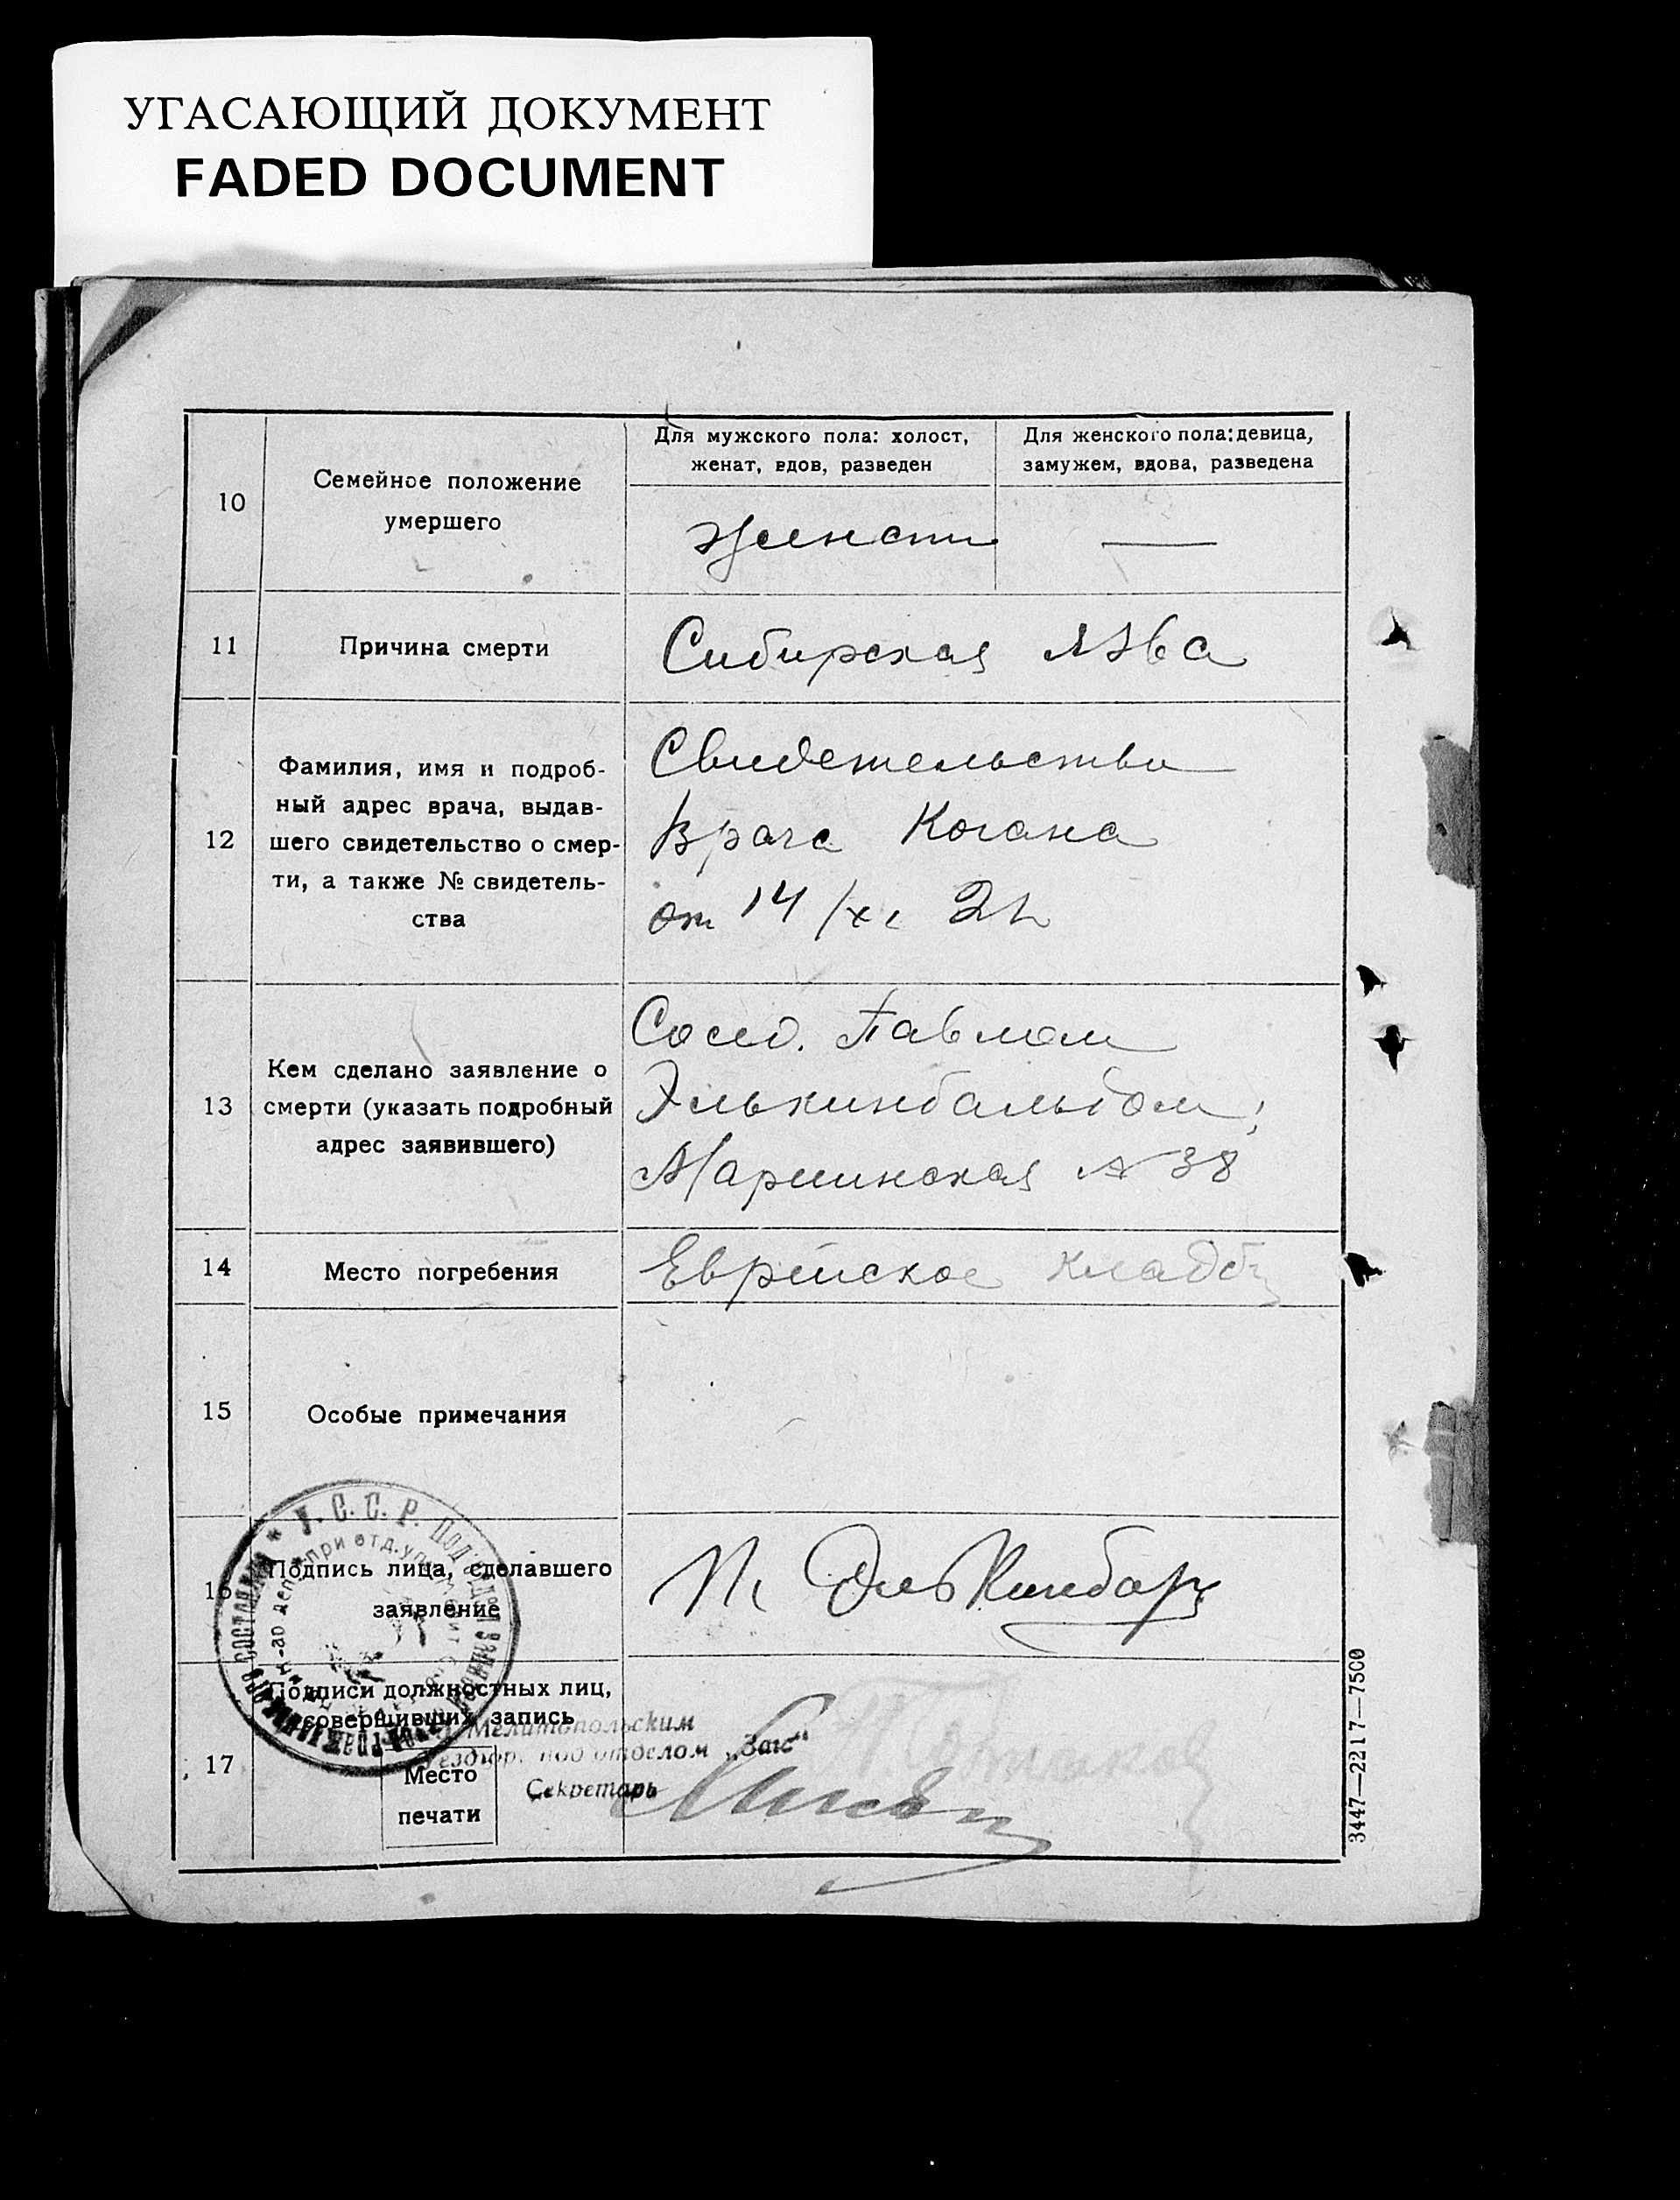 УГАСАЮЩИЙ ДОКУМЕНТ
FADED DOCUMENT
10
Семейное положение
умершего
Для мужского пола: холост,
женат, вдов, разведен
Для женского пола: девица,
замужем, вдова, разведена
женат
—
11
Причина смерти
Сибирская язва
12
Фамилия, имя и подроб-
ный адрес врача, выдав-
шего свидетельство о смер-
ти, а также № свидетель-
ства
Свидетельство
врача Когана
от 14/XI 22
13
Кем сделано заявление о
смерти (указать подробный
адрес заявившего)
Сосед. Павлом
Элькинбальдом,
Мариинская № 38
14
Место погребения
Еврейское кладб
15
Особые примечания
16
Подпись лица, сделавшего
заявление
17
Подписи должностных лиц,
совершивших запись
Место
печати
У.С.С.Р.
Мелитопольским
под отделом „Загс“
Секретарь
3447—2217—7500